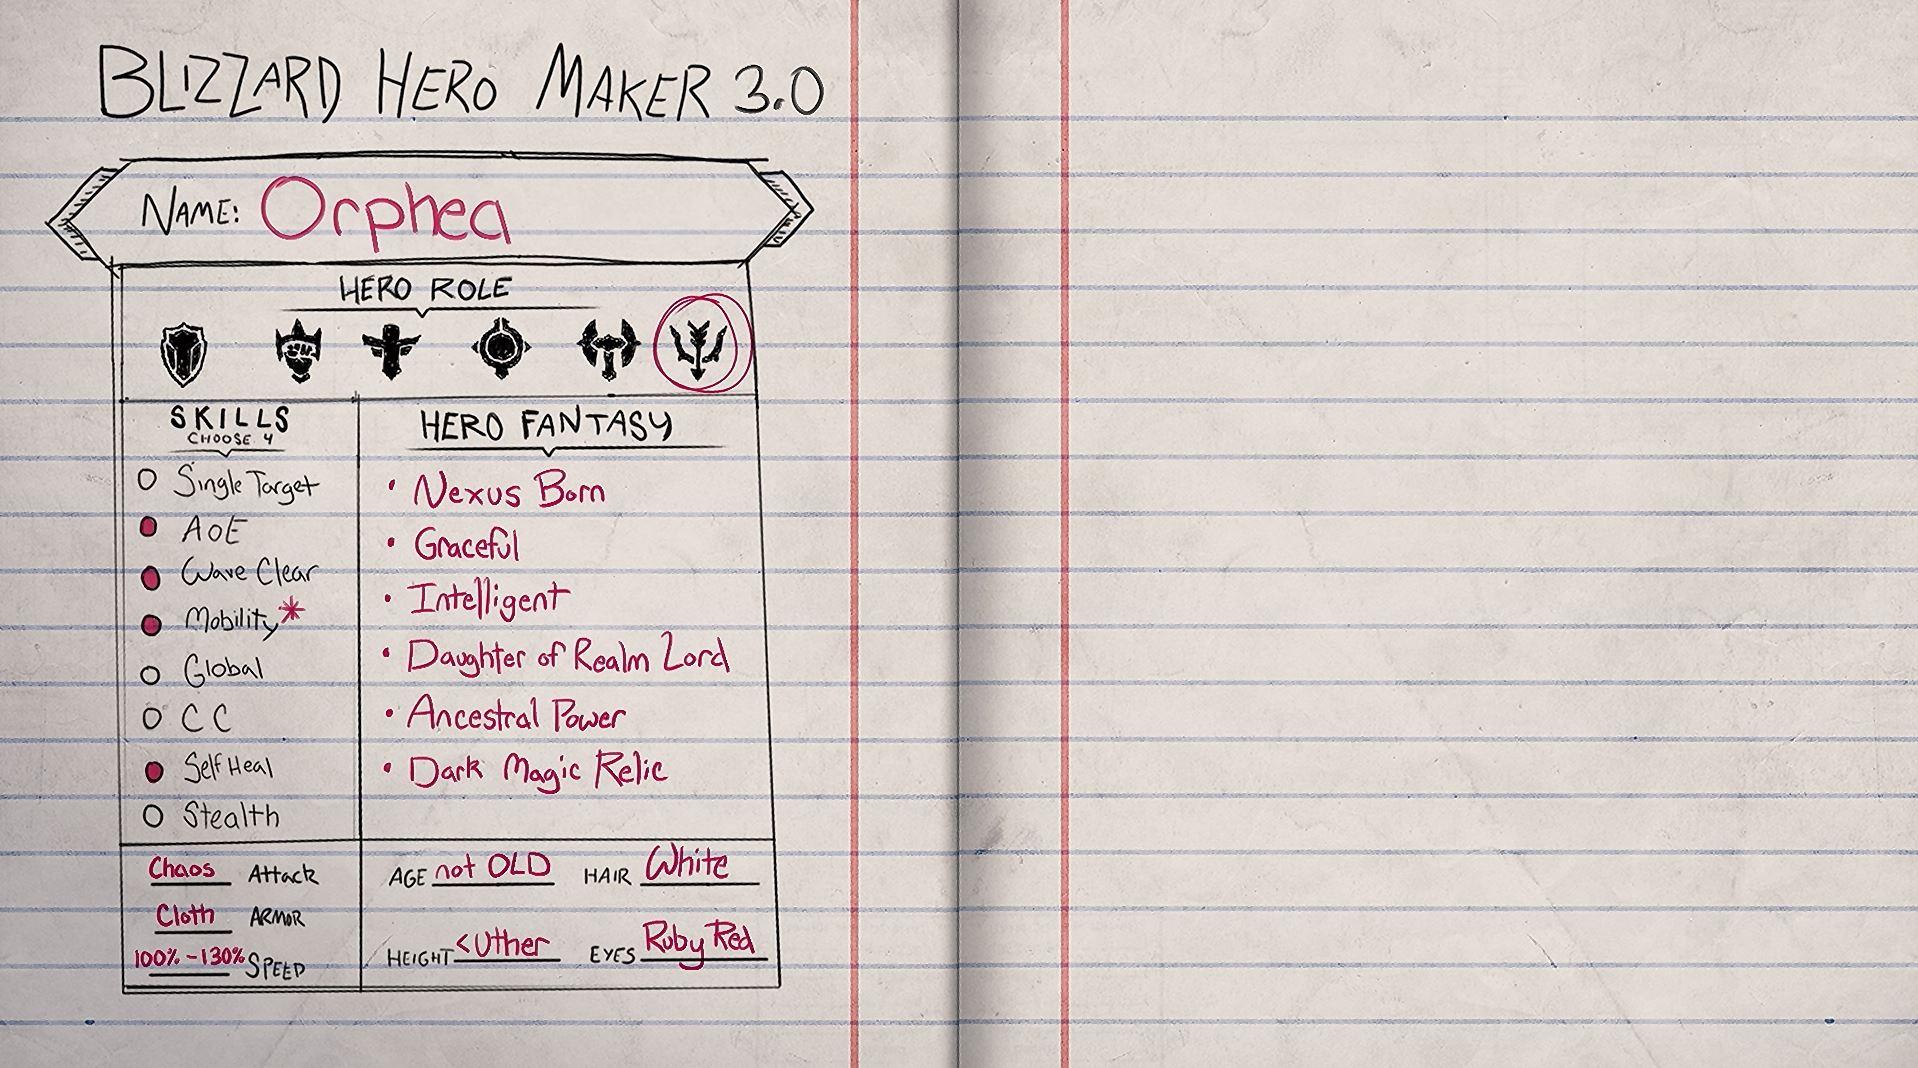 BLIZZARD HERO MAKER 3.0
NAME: Orphea
HERO ROLE
SKILLS
CHOOSE 4
Single Target
AoE
Wave Clear
Mobility*
Global
CC
Self Heal
Stealth
HERO FANTASY
• Nexus Born
• Graceful
• Intelligent
• Daughter of Realm Lord
• Ancestral Power
• Dark Magic Relic
Chaos ATTACK
Cloth ARMOR
100% - 130% SPEED
AGE not OLD HAIR White
HEIGHT < Uther EYES Ruby Red